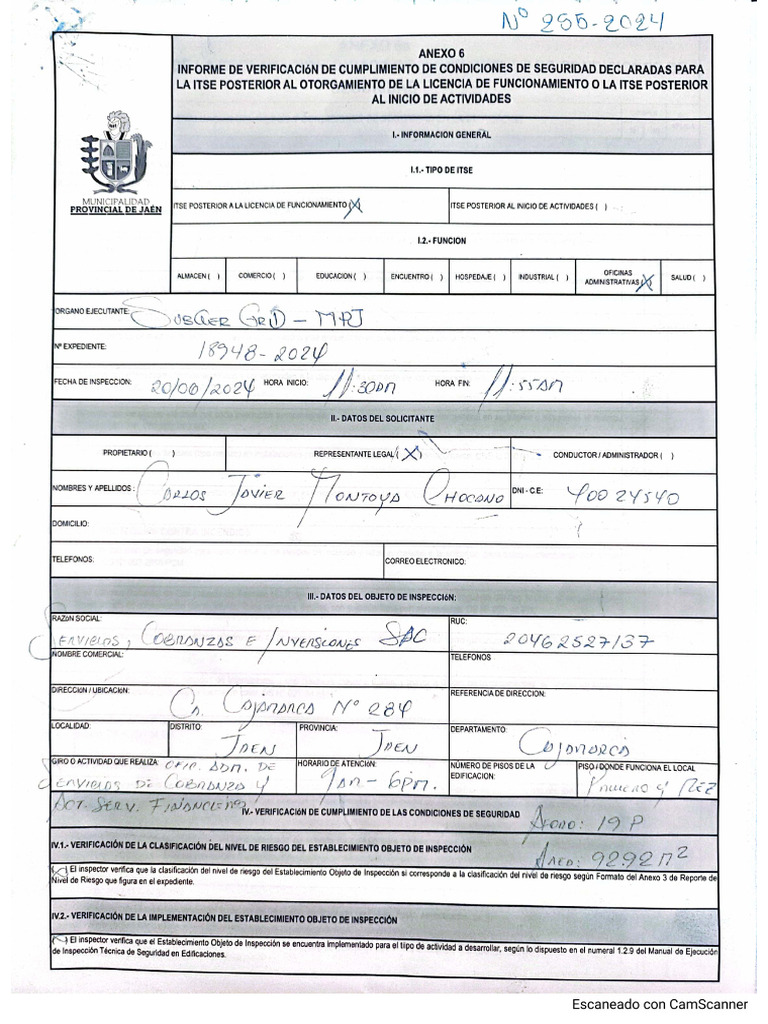 Nº 255-2024
ANEXO 6
INFORME DE VERIFICACIóN DE CUMPLIMIENTO DE CONDICIONES DE SEGURIDAD DECLARADAS PARA
LA ITSE POSTERIOR AL OTORGAMIENTO DE LA LICENCIA DE FUNCIONAMIENTO O LA ITSE POSTERIOR
AL INICIO DE ACTIVIDADES
I.- INFORMACION GENERAL
I.1.- TIPO DE ITSE
MUNICIPALIDAD
PROVINCIAL DE JAÉN
ITSE POSTERIOR A LA LICENCIA DE FUNCIONAMIENTO (X) ITSE POSTERIOR AL INICIO DE ACTIVIDADES ( )
I.2.- FUNCION
ALMACEN ( ) COMERCIO ( ) EDUCACION ( ) ENCUENTRO ( ) HOSPEDAJE ( ) INDUSTRIAL ( ) OFICINAS ADMINISTRATIVAS (X) SALUD ( )
ORGANO EJECUTANTE: SUBGER GRD - MPJ
Nº EXPEDIENTE: 18948-2024
FECHA DE INSPECCION: 20/06/2024 HORA INICIO: 11:30AM HORA FIN: 11:55AM
II.- DATOS DEL SOLICITANTE
PROPIETARIO ( ) REPRESENTANTE LEGAL (X) CONDUCTOR / ADMINISTRADOR ( )
NOMBRES Y APELLIDOS : CARLOS JAVIER MONTOYA CHOCANO DNI - C.E: 40024540
DOMICILIO:
TELEFONOS: CORREO ELECTRONICO:
III.- DATOS DEL OBJETO DE INSPECCIóN:
RAZóN SOCIAL: SERVICIOS, COBRANZAS E INVERSIONES SAC RUC: 20462527137
NOMBRE COMERCIAL: TELEFONOS
DIRECCIóN / UBICACIóN: CA. CAJAMARCA Nº 284 REFERENCIA DE DIRECCION:
LOCALIDAD: DISTRITO: JAEN PROVINCIA: JAEN DEPARTAMENTO: CAJAMARCA
GIRO O ACTIVIDAD QUE REALIZA OFIC. ADM. DE HORARIO DE ATENCIóN: 9AM - 6PM. NÚMERO DE PISOS DE LA EDIFICACION: PISO / DONDE FUNCIONA EL LOCAL PRIMERO Y MEZ
SERVICIOS DE COBRANZA Y
ACT. SERV. FINANCIERO
IV.- VERIFICACIÓN DE CUMPLIMIENTO DE LAS CONDICIONES DE SEGURIDAD AFORO: 19 P
IV.1.- VERIFICACIÓN DE LA CLASIFICACIÓN DEL NIVEL DE RIESGO DEL ESTABLECIMIENTO OBJETO DE INSPECCIÓN AREA: 92.92 m2
( ) El inspector verifica que la clasificación del nivel de riesgo del Establecimiento Objeto de Inspección si corresponde a la clasificación del nivel de riesgo según Formato del Anexo 3 de Reporte de
Nivel de Riesgo que figura en el expediente.
IV.2.- VERIFICACIÓN DE LA IMPLEMENTACIÓN DEL ESTABLECIMIENTO OBJETO DE INSPECCIÓN
( ) El inspector verifica que el Establecimiento Objeto de Inspección se encuentra implementado para el tipo de actividad a desarrollar, según lo dispuesto en el numeral 1.2.9 del Manual de Ejecución
de Inspección Técnica de Seguridad en Edificaciones.
Escaneado con CamScanner